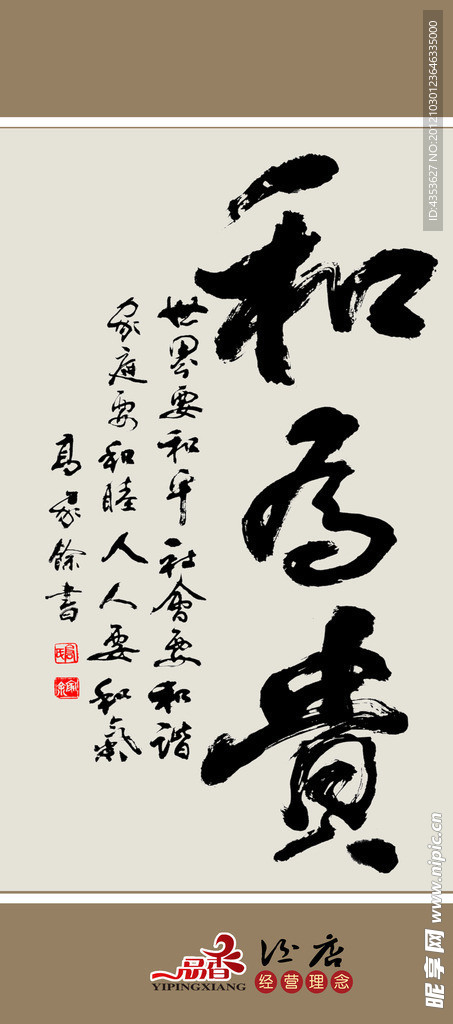 和为貴
世界要和平社會要和谐
家庭要和睦人人要和氣
高家餘書
一品香
YIPINGXIANG
酒店
经营理念
昵享网 www.nipic.cn
ID:4353627 NO:20121030123646335000